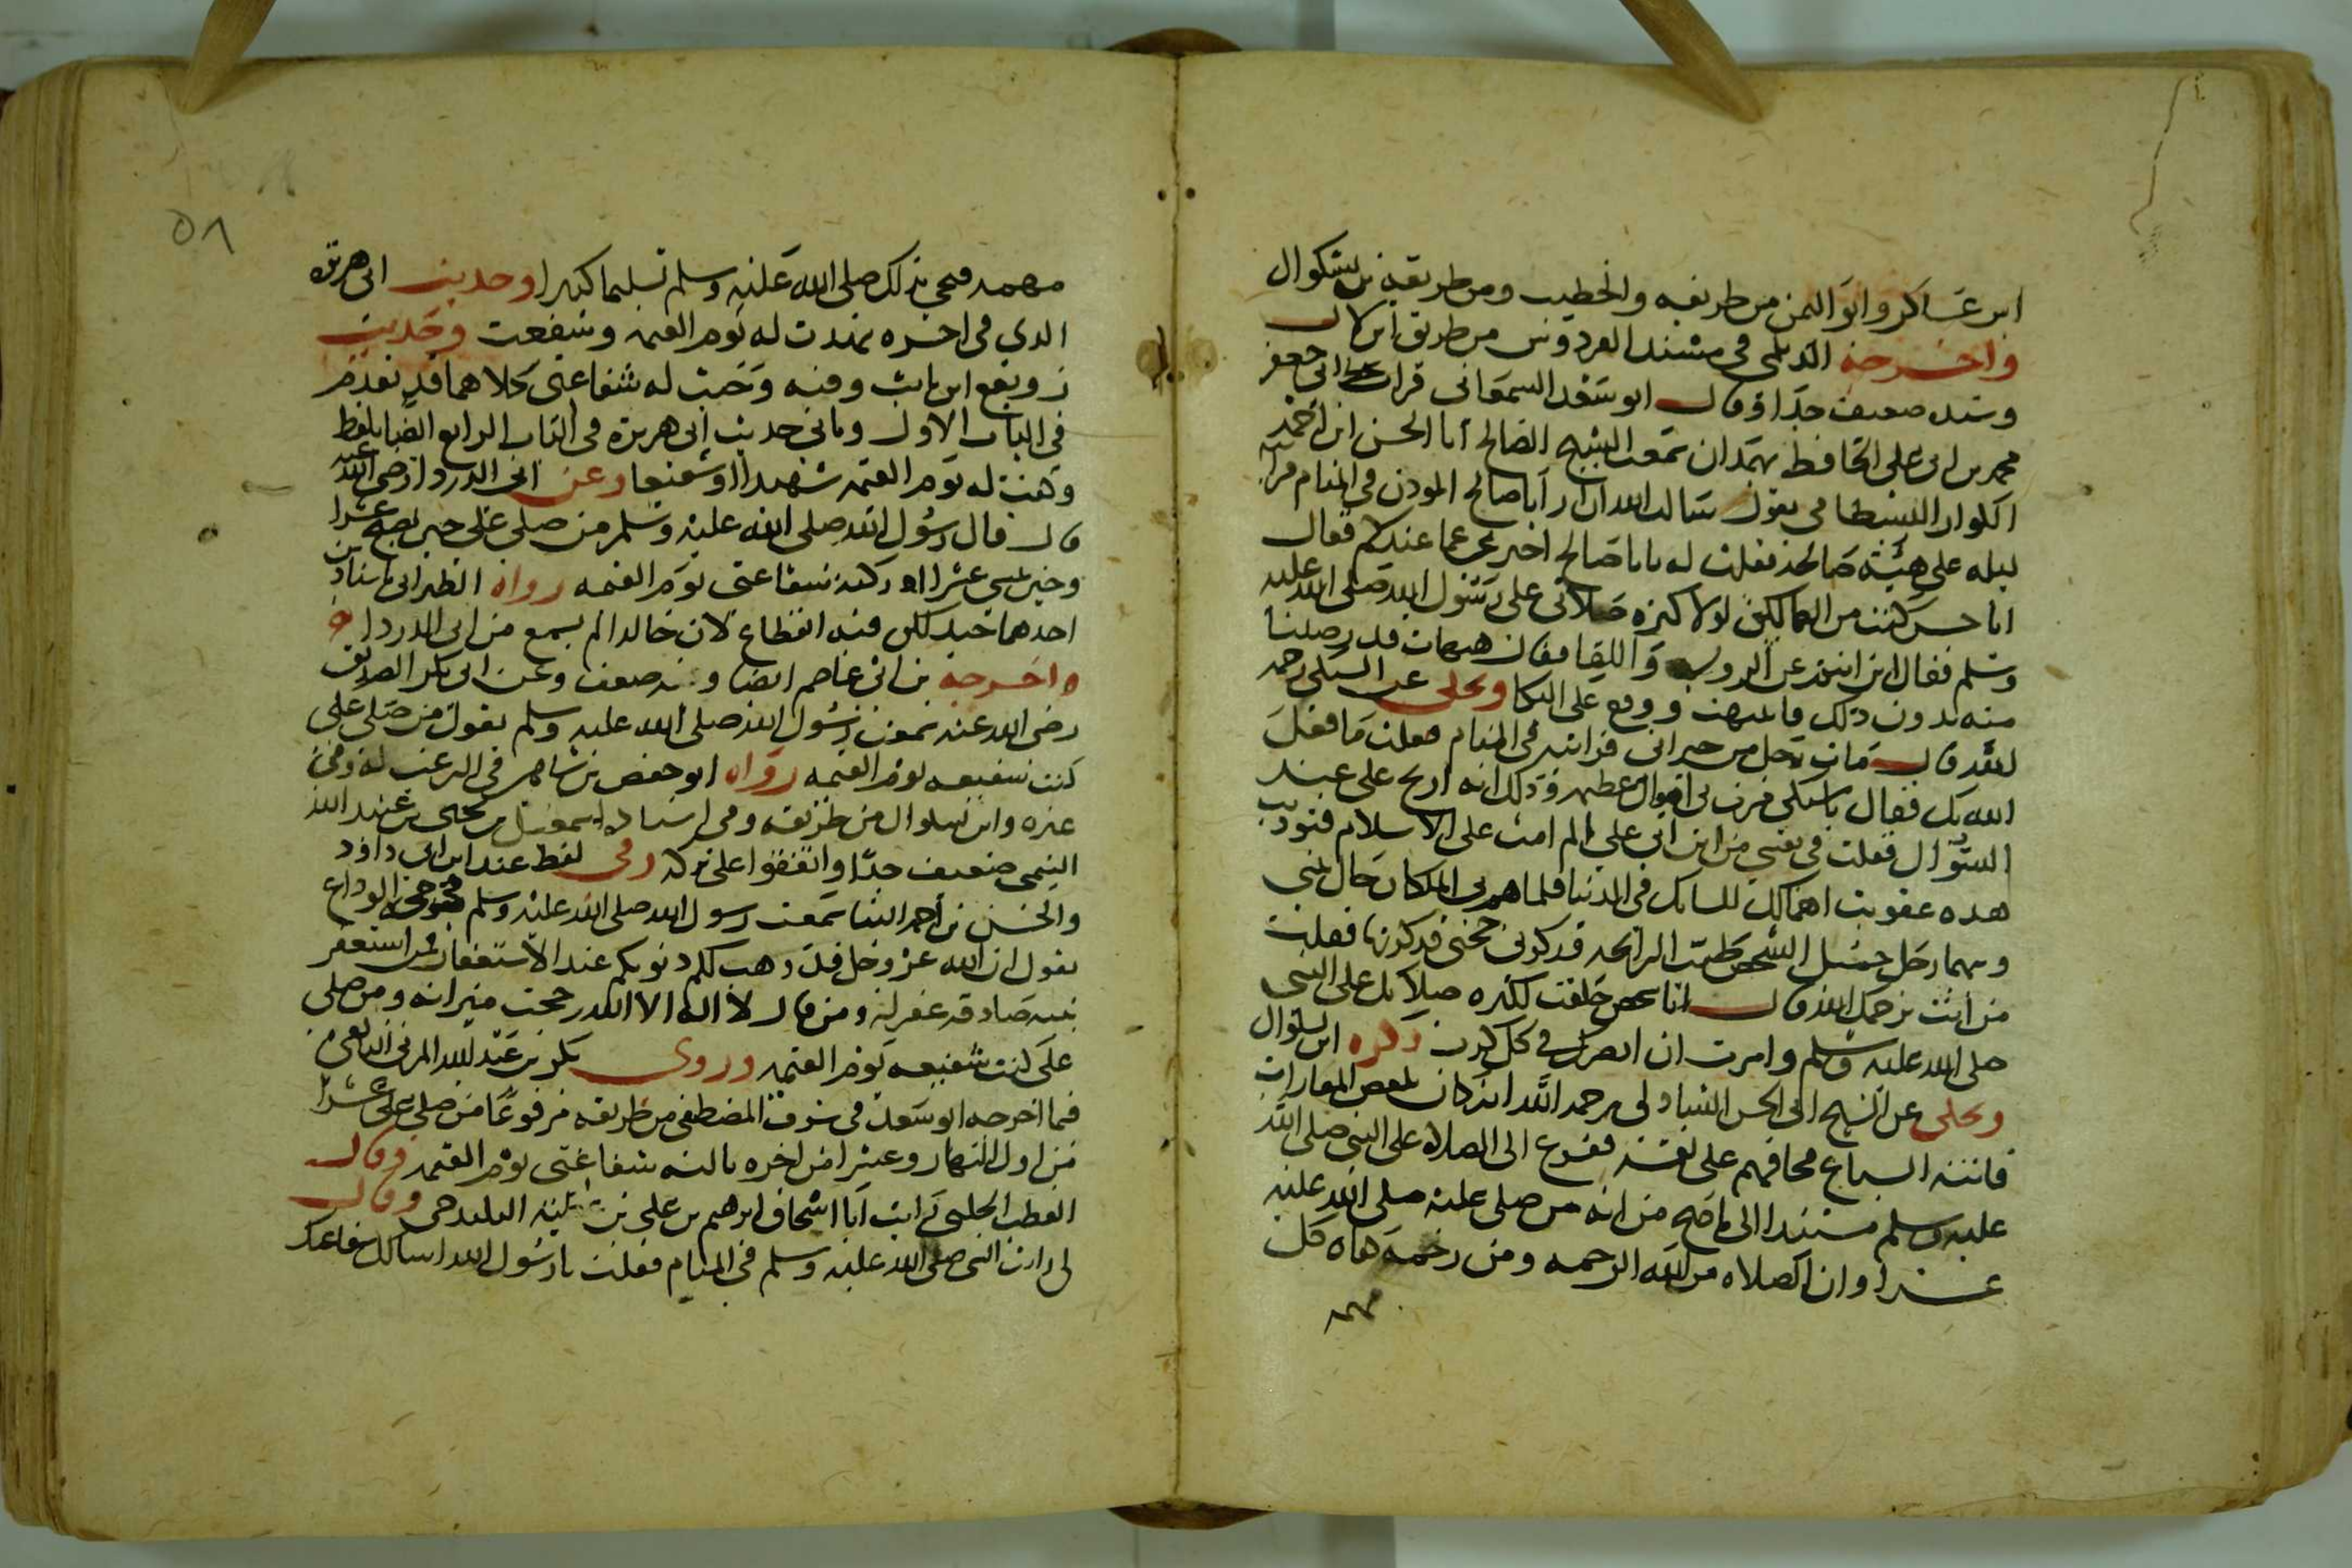 ابن عساكر وابو اليمن من طريقه والخطيب ومن طريقه بن بشكوال
واخرجه الديلمي في مسند الفردوس من طريق ابن لال
وسنده ضعيف جدا وقال ابو سعد السمعاني قرات على ابي جعفر
محمد بن ابي علي الحافظ بهمدان سمعت الشيخ الصالح ابا الحسن ابن احمد
البسطامي يقول سالت الله ان ارى ابا صالح المؤذن في المنام فرايته
ليله على هيئة صالحة فقلت له يا ابا صالح اخبرني عما عندكم فقال
ابا حسن كنت من الهالكين لولا كثره صلاتي على رسول الله صلى الله عليه
وسلم فقال اين انت عن الرويه واللقا فقال هيهات قد رضينا
منه بدون ذلك فانتبهت ووقع علي البكا وحكي عن الشبلي رحمه
الله قال مات رجل من جيراني فرايته في المنام فقلت ما فعل
الله بك فقال يا شبلي مرت بي اهوال عظيمه وذلك انه ارتج علي عند
السؤال فقلت في نفسي من اين اتي علي الم امت على الاسلام فنوديت
هذه عقوبت اهمالك للسانك في الدنيا فلما هم بي الملكان حال بيني
وبينهما رجل جميل الشخص طيب الرائحه فذكرني حجتي فذكرتها فقلت
من انت يرحمك الله قال انا شخص خلقت لكثره صلاتك على النبي
صلى الله عليه وسلم وامرت ان انصرك في كل كرب ذكره ابن بشكوال
وحكي عن الشيخ ابي الحسن الشاذلي رحمه الله انه كان ببعض المفازات
فاتته السباع فخافهم على نفسه ففزع الى الصلاه على النبي صلى الله
عليه وسلم مستندا الى ما صح من انه من صلى عليه صلى الله عليه
عشرا وان الصلاه من الله الرحمه ومن رحمه كفاه كل
مهمه
٥٨
مهمه فنجي بذلك صلى الله عليه وسلم تسليما كثيرا وحديث ابي هريره
الذي في اخره شهدت له يوم القيمه وشفعت وحديث
رويفع ابن ثابت وفيه وجبت له شفاعتي كلاهما قد تقدم
في الباب الاول وياتي حديث ابي هريرة في الباب الرابع ايضا بلفظ
وكنت له يوم القيمه شهيدا او شفيعا وعن ابي الدرداء رضي الله عنه
قال قال رسول الله صلى الله عليه وسلم من صلى علي حين يصبح عشرا
وحين يمسي عشرا ادركته شفاعتي يوم القيمه رواه الطبراني باسنادين
احدهما جيد لكن فيه انقطاع لان خالدا لم يسمع من ابي الدردا
واخرجه بن ابي عاصم ايضا وفيه ضعف وعن ابي بكر الصديق
رضي الله عنه سمعت رسول الله صلى الله عليه وسلم يقول من صلى علي
كنت شفيعه يوم القيمه رواه ابو حفص بن شاهين في الترغيب له وفي
غيره وابن بشكوال من طريقه وفي اسناده اسمعيل بن يحيى بن عبيد الله
التيمي ضعيف جدا واتفقوا على تركه وفي لفظ عند ابن ابي داود
والحسن بن احمد البنا سمعت رسول الله صلى الله عليه وسلم في حجة الوداع
يقول ان الله عز وجل قد وهب لكم ذنوبكم عند الاستغفار فمن استغفر
بنيه صادقه غفر له ومن قال لا اله الا الله رجحت ميزانه ومن صلى
علي كنت شفيعه يوم القيمه وروى بكر بن عبد الله المزني التابعي
فيما اخرجه ابو سعد في شرف المصطفى من طريقه مرفوعا من صلى علي عشرا
من اول النهار وعشرا من اخره نالته شفاعتي يوم القيمه وقال
القطب الحلبي رايت ابا اسحاق ابرهيم بن علي بن عطيه وقال
لي رايت النبي صلى الله عليه وسلم في المنام فقلت يا رسول الله اسالك شفاعتك